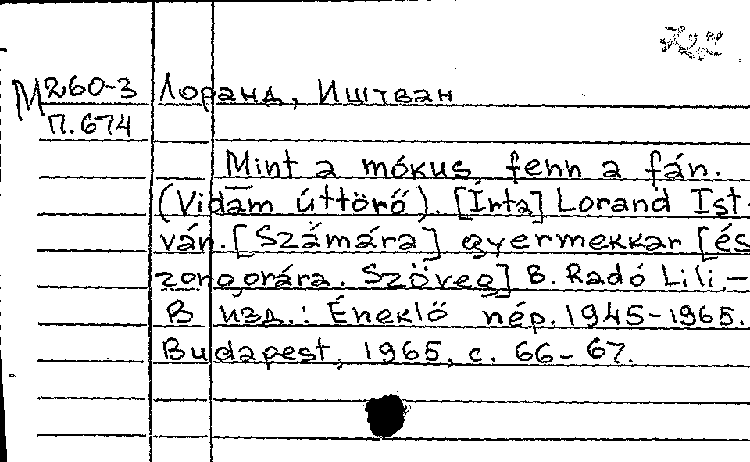 М 260-3 Лоранд, Иштван
П.674
Mint a mókus fenn a fán.
(Vidám úttörő). [Írta] Lorand Ist-
ván. [Számára] gyermekkar [és
zongorára. Szöveg] B. Radó Lili. –
В изд.: Éneklő nép. 1945-1965.
Budapest, 1965, с. 66-67.